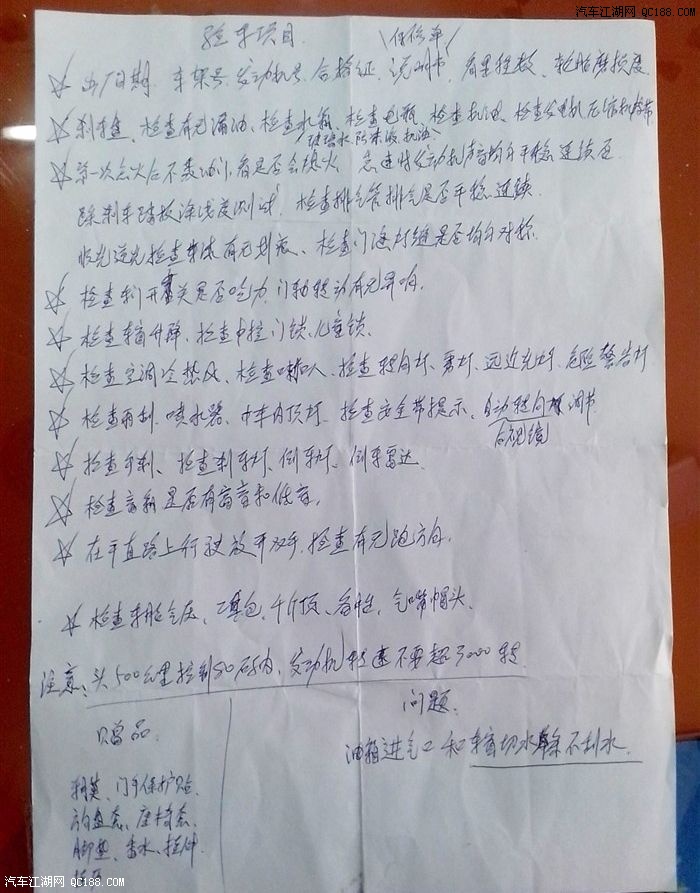 汽车江湖网 QC188.COM
验车项目
保修单
☆ 出厂日期、车架号、发动机号、合格证、说明书、看里程数、轮胎磨损度
☆ 刹车盘、检查有无漏油、检查水箱、检查电瓶、检查机油、检查发电机压缩机皮带
玻璃水、防冻液、机油
☆ 第一次点火后不踩油门,看是否会熄火 怠速时发动机声音均匀平稳连续否
踩刹车踏板深浅度测试 检查排气管排气是否平稳连续
顺光逆光检查车体有无划痕、检查门边灯缝是否均匀对称.
☆ 检查车门开关是否吃力,门轴转动有无异响.
☆ 检查车窗升降、检查中控门锁、儿童锁.
☆ 检查空调冷热风、检查喇叭、检查转向灯、雾灯、远近光灯、危险警告灯
☆ 检查雨刮、喷水器、卡车内顶灯、检查安全带提示、自动转向 调节
后视镜
☆ 检查手刹、检查刹车灯、倒车灯、倒车雷达
☆ 检查音箱是否有高音和低音.
☆ 在平直路上行驶放开双手,检查有无跑方向.
☆ 检查车胎气压、工具包、千斤顶、备胎、气嘴帽头.
注意:头500公里控制80码内,发动机转速不要超3000转
问题:
赠品
油箱进气口和车窗切水条不刮水.
门手保护贴
方向盘套、座椅套
脚垫、香水、拉伸
汽车江湖网 QC188.COM